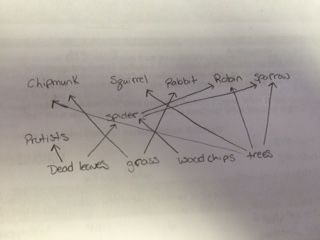 Chipmunk Squirrel Rabbit Robin Sparrow
Spider
Protists
Dead leaves grass woodchips trees